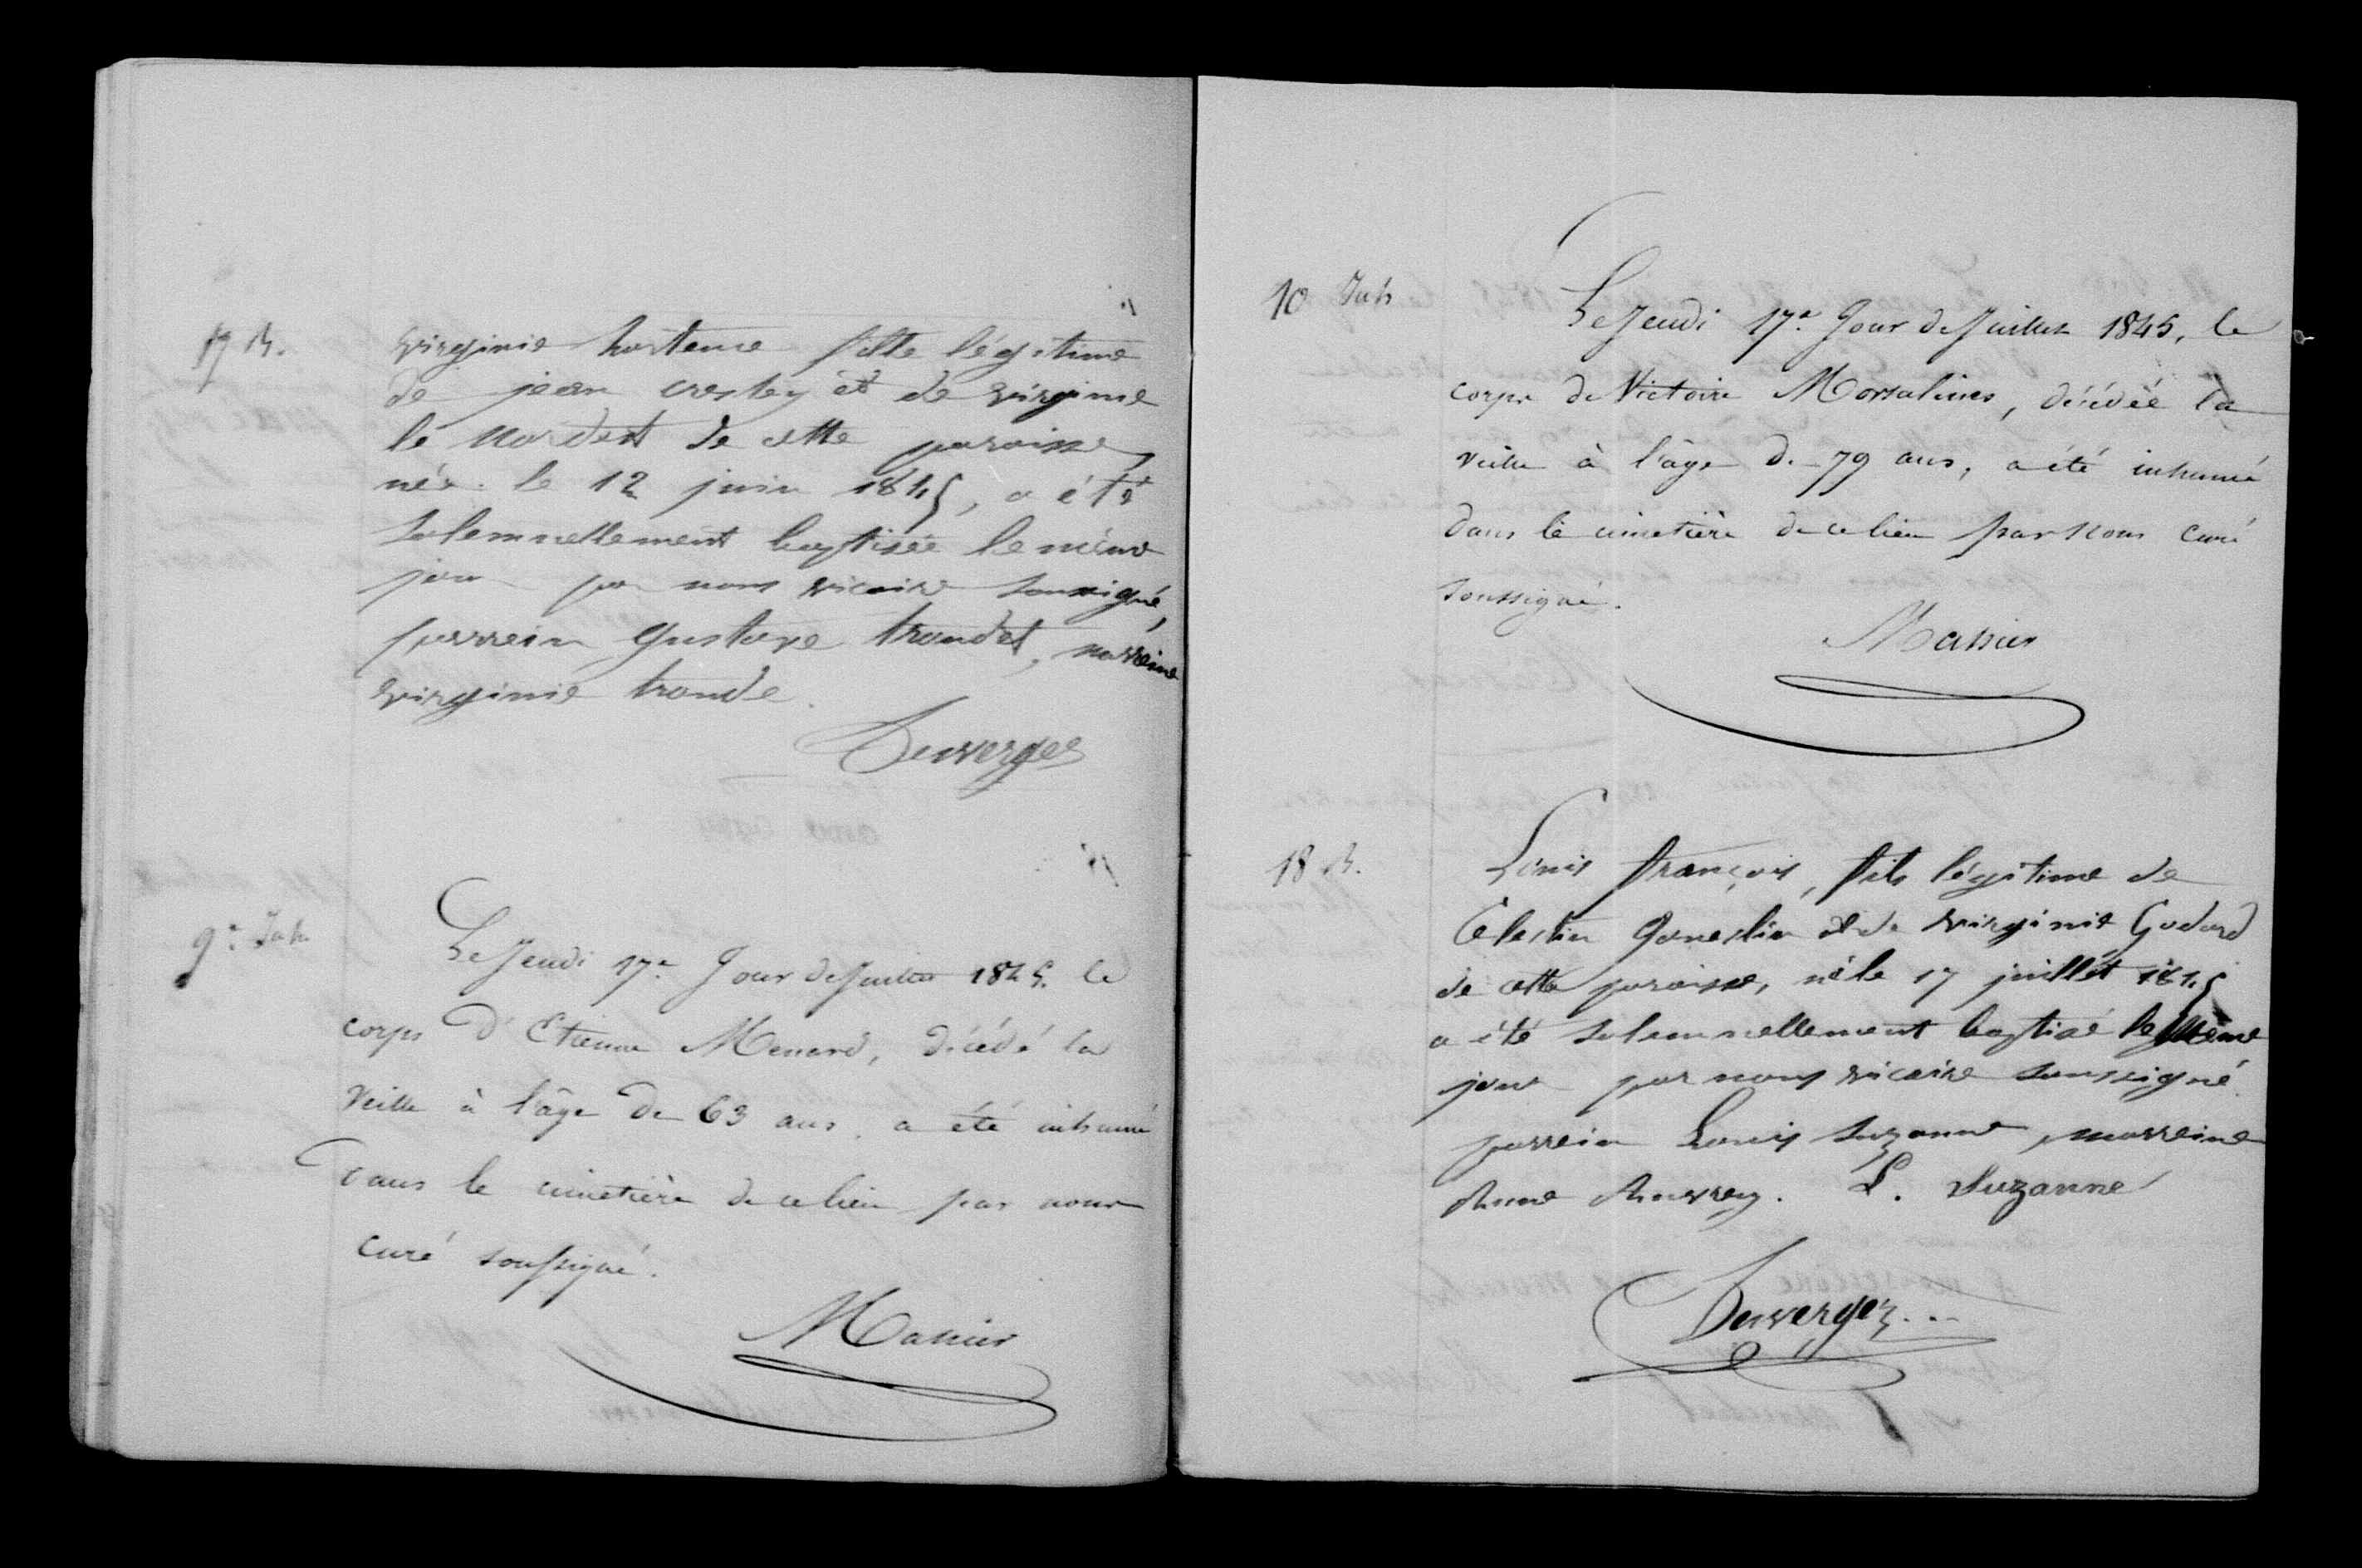 17 B.
virginie hortense fille légitime
de jean crestey et de virginie
le nordest de cette paroisse
née le 12 juin 1845, a été
solemnellement baptisée le même
jour par nous vicaire soussigné,
parrein gustave troudet, marreine
virginie troude.
Duverger
9e Inh.
Le Jeudi 17e Jour de Juillet 1845. le
corps d'Etienne Menard, décédé la
veille à l'âge de 63 ans, a été inhumé
dans le cimetière de ce lieu par nous
curé soussigné.
Massier
10 Inh
Le Jeudi 17e Jour de Juillet 1845, le
corps de Victoire Morsalines, décédée la
veille à l'âge de 79 ans, a été inhumé
dans le cimetière de ce lieu par Nous curé
soussigné.
Massier
18 B.
Louis françois, fils légitime de
Célestin Goneslin et de virginie Godard
de cette paroisse, né le 17 juillet 1845
a été solemnellement baptisé le même
jour par nous vicaire soussigné.
parrein Louis suzanne, marreine
Anne L. Suzanne
Duverger...